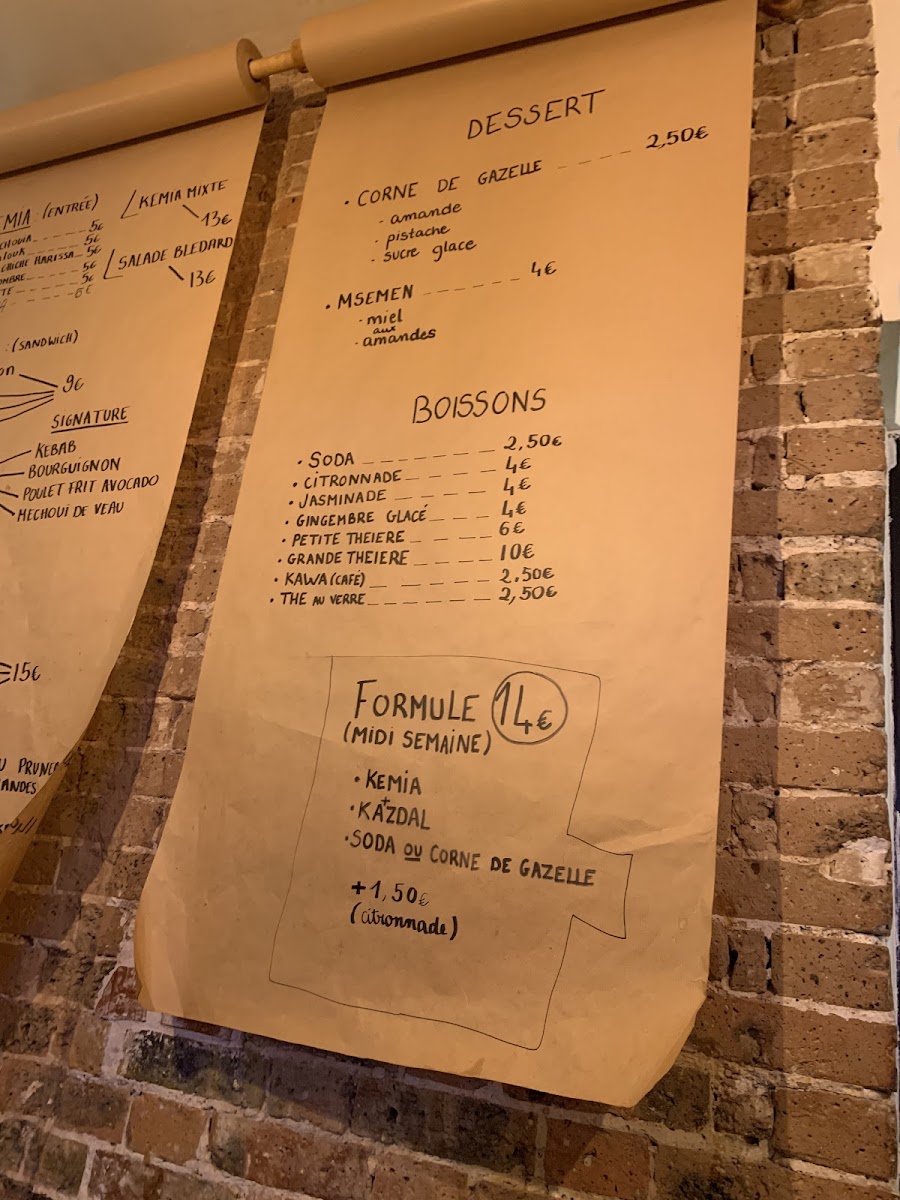 MIA : (ENTRÉE)
CHOUIA 5€
LOUK 5€
CHICHE HARISSA 5€
OMBRE 5€
TE 5€
5€
KEMIA MIXTE
13€
SALADE BLEDARD
13€
: (SANDWICH)
on
9€
SIGNATURE
KEBAB
BOURGUIGNON
POULET FRIT AVOCADO
MECHOUI DE VEAU
15€
U PRUNE
ANDES
DESSERT
• CORNE DE GAZELLE 2,50€
- amande
- pistache
- sucre glace
• MSEMEN 4€
- miel
aux
- amandes
BOISSONS
• SODA 2,50€
• CITRONNADE 4€
• JASMINADE 4€
• GINGEMBRE GLACÉ 4€
• PETITE THEIERE 6€
• GRANDE THEIERE 10€
• KAWA (CAFÉ) 2.50€
• THE AU VERRE 2,50€
FORMULE 14€
(MIDI SEMAINE)
• KEMIA
+
• KAZDAL
• SODA OU CORNE DE GAZELLE
+1,50€
(citronnade)